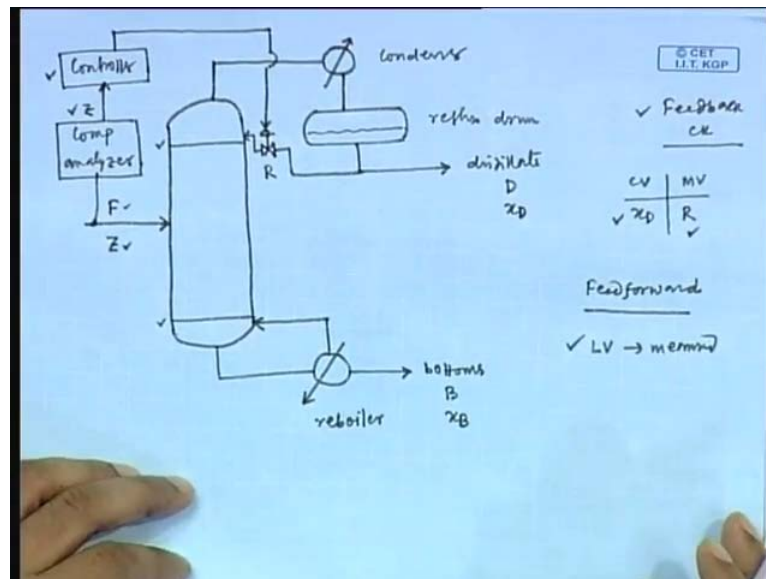 Controller
✓
✓ Z
Comp
analyzer
F ✓
Z ✓
✓
✓
R
condenser
reflux drum
distillate
D
x_D
bottoms
B
x_B
reboiler
© CET
I.I.T. KGP
✓ Feedback
CV | MV
✓ x_D | R
✓
Feedforward
✓ LV → measured